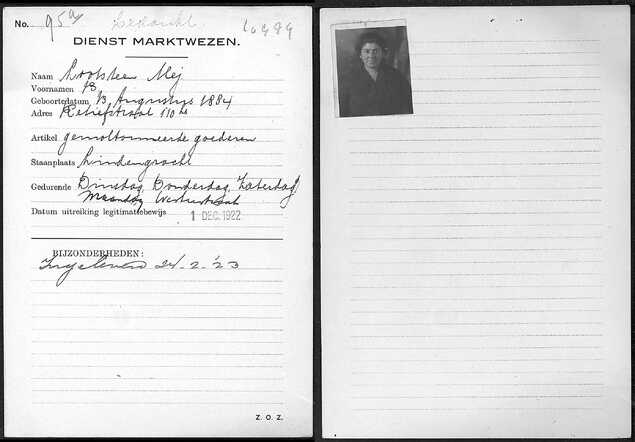 No. 95a
Bedankt
DIENST MARKTWEZEN.
Naam Mej
Voornamen B
Geboortedatum 13 Augustus 1884
Adres Retiefstraat 110 hs
Artikel goederen
Staanplaats Lindengracht
Gedurende Dinsdag, Donderdag, Zaterdag
Maandag Westerstraat
Datum uitreiking legitimatiebewijs 1 DEC. 1922
BIJZONDERHEDEN:
Ingeleverd 24-2-'23
Z. O. Z.